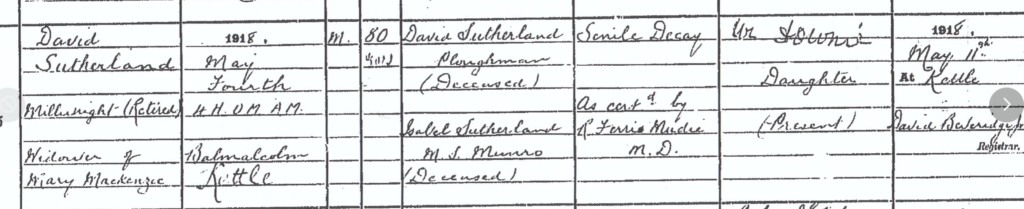 David
Sutherland
Millwright (Retired)
Widower of
Mary Mackenzie
1918.
May
Fourth
4 H. 0 M. A.M.
Balmalcolm
Kettle
M.
80
years
David Sutherland
Ploughman
(Deceased)
Isabel Sutherland
M. S. Munro
(Deceased)
Senile Decay
As certd by
R Ferrie Mudie
M.D.
Daughter
(Present)
1918.
May 11th
At Kettle
David Beveridge
Registrar.